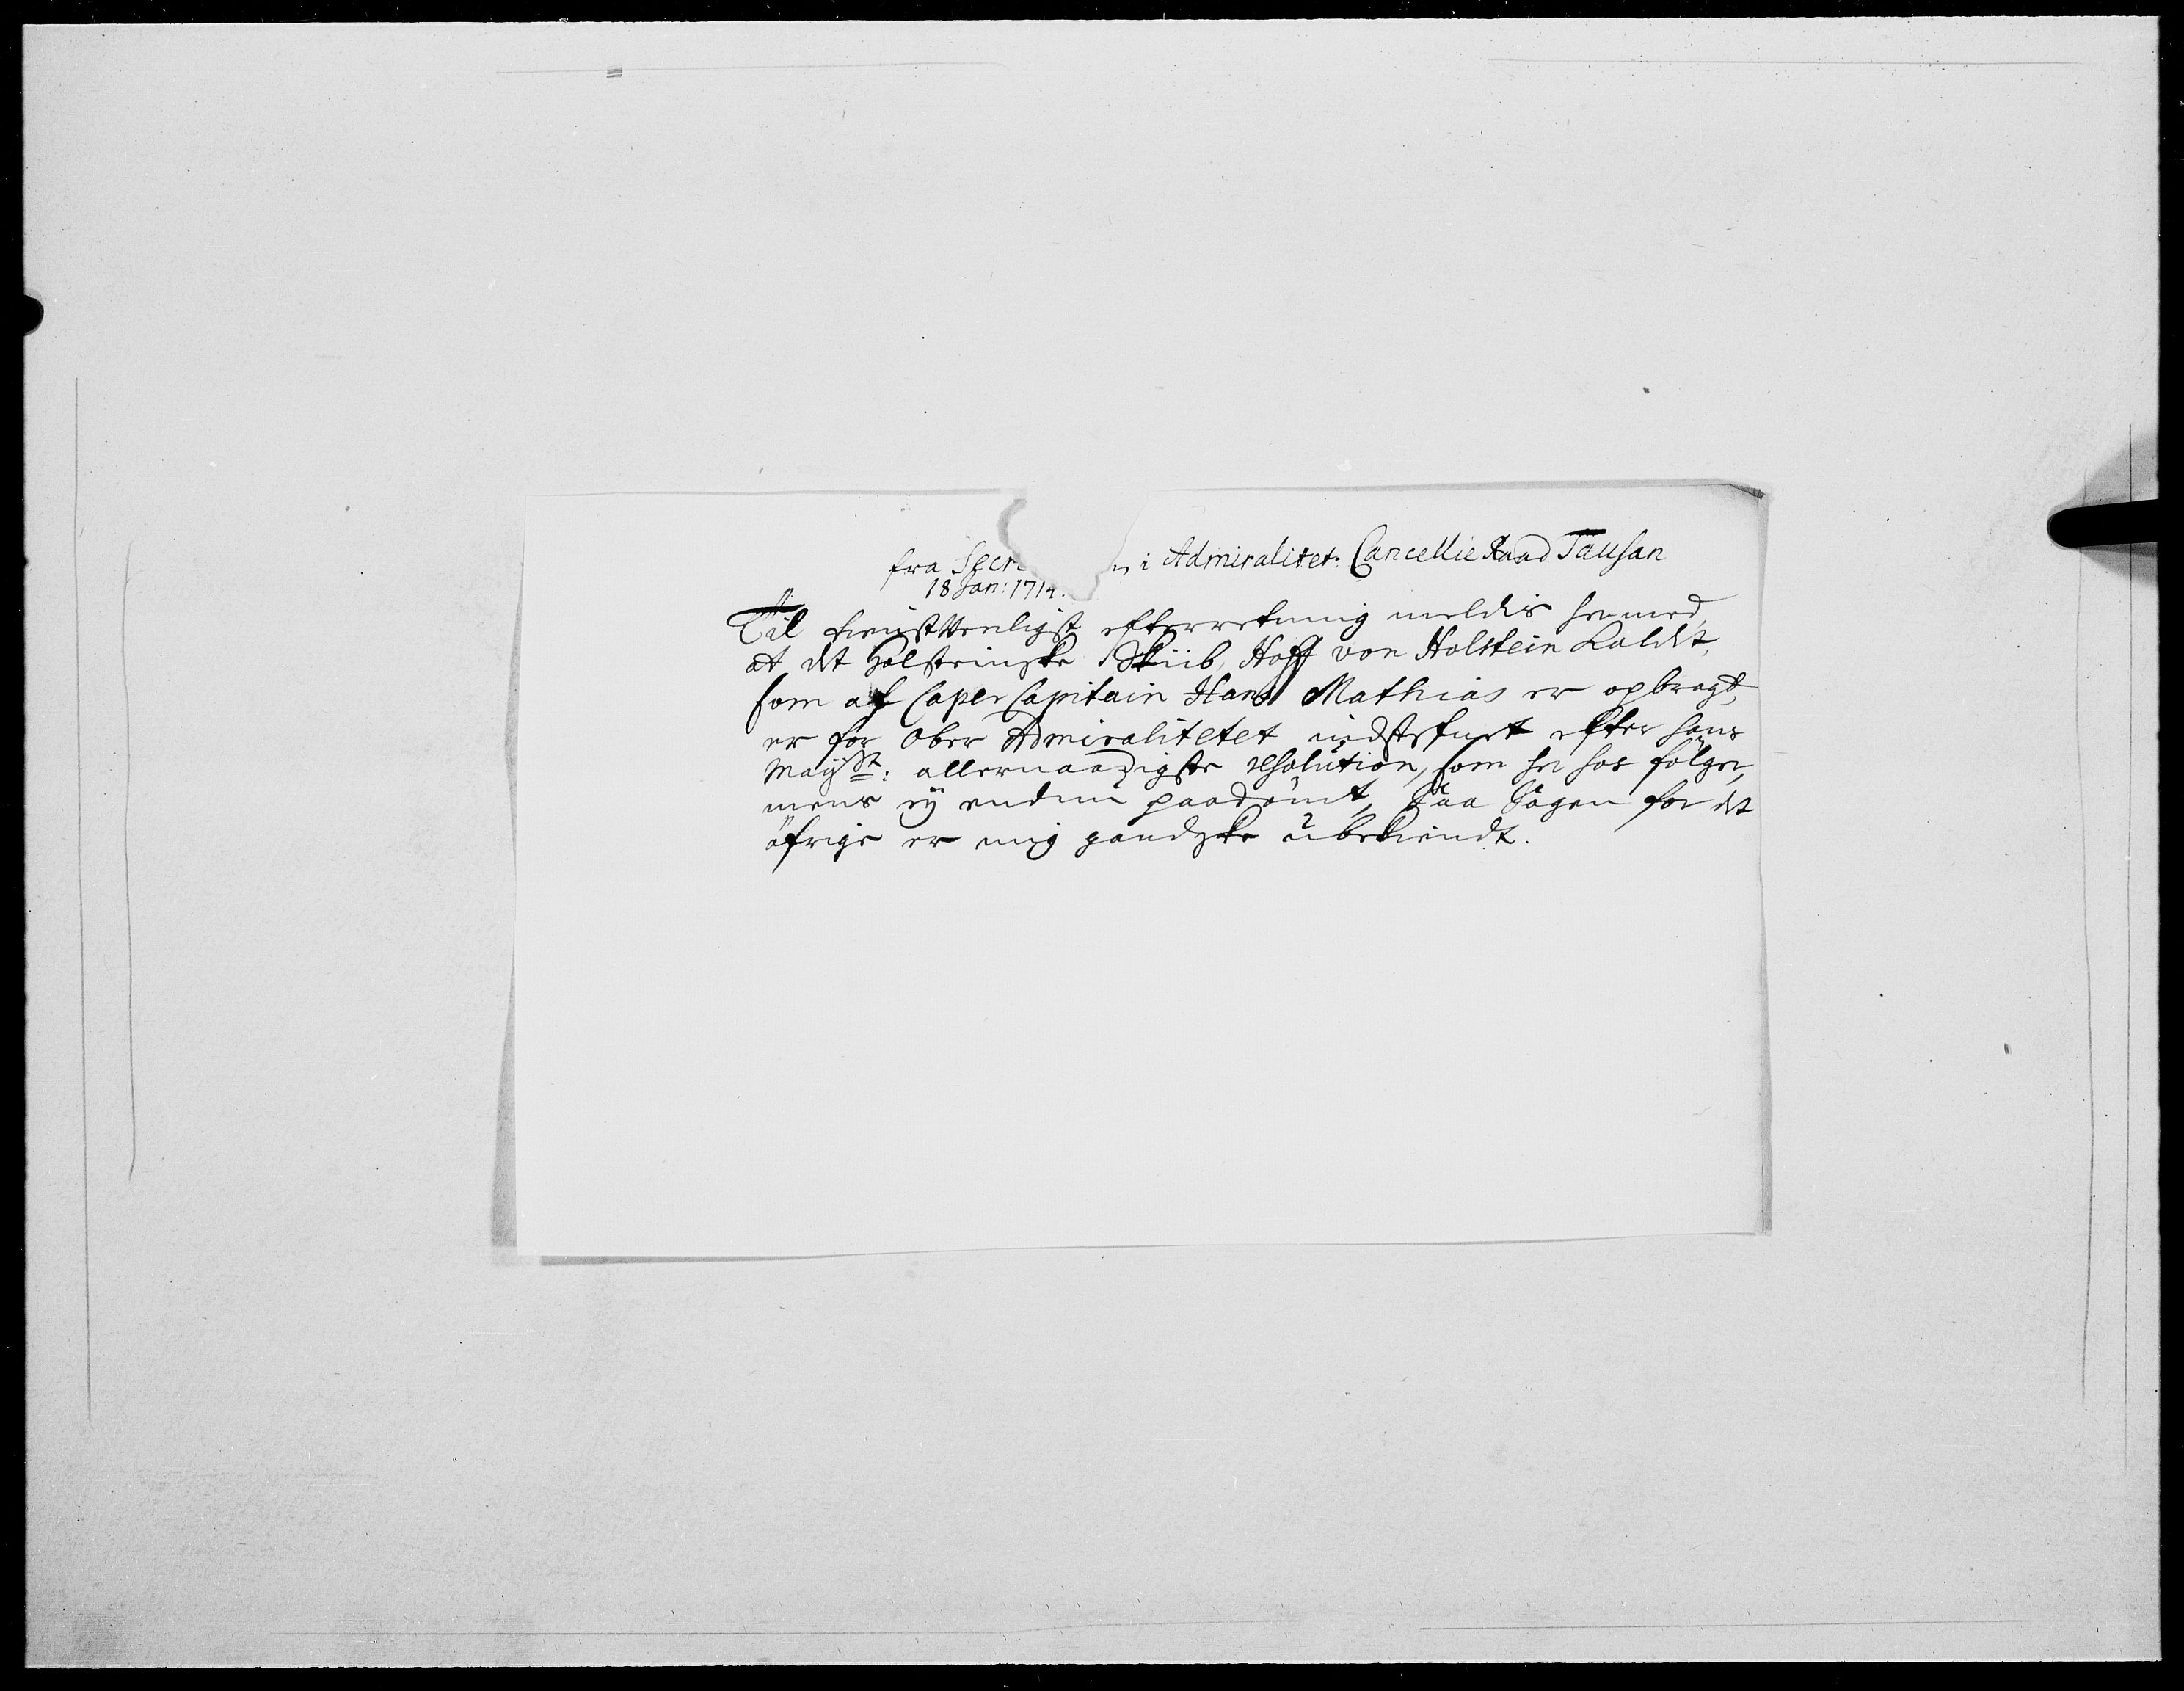 fra Secre n i Admiralitet: Cancellie Raad Tausan
18 Jan: 1714.
Til tienstvenligst efterretning meldis hermed,
at det Holsteinske Skiib, Hoff von Holstein Kaldet,
som af Caper Capitain Hans Mathias er opbragt,
er for Ober Admiralitetet indstefnet efter hans
Mayst: allernaadigste resolution, som her hos følger,
mens ey endnu paadømt, saa Sagen for det
øfrige er mig gandske ubekiendt.